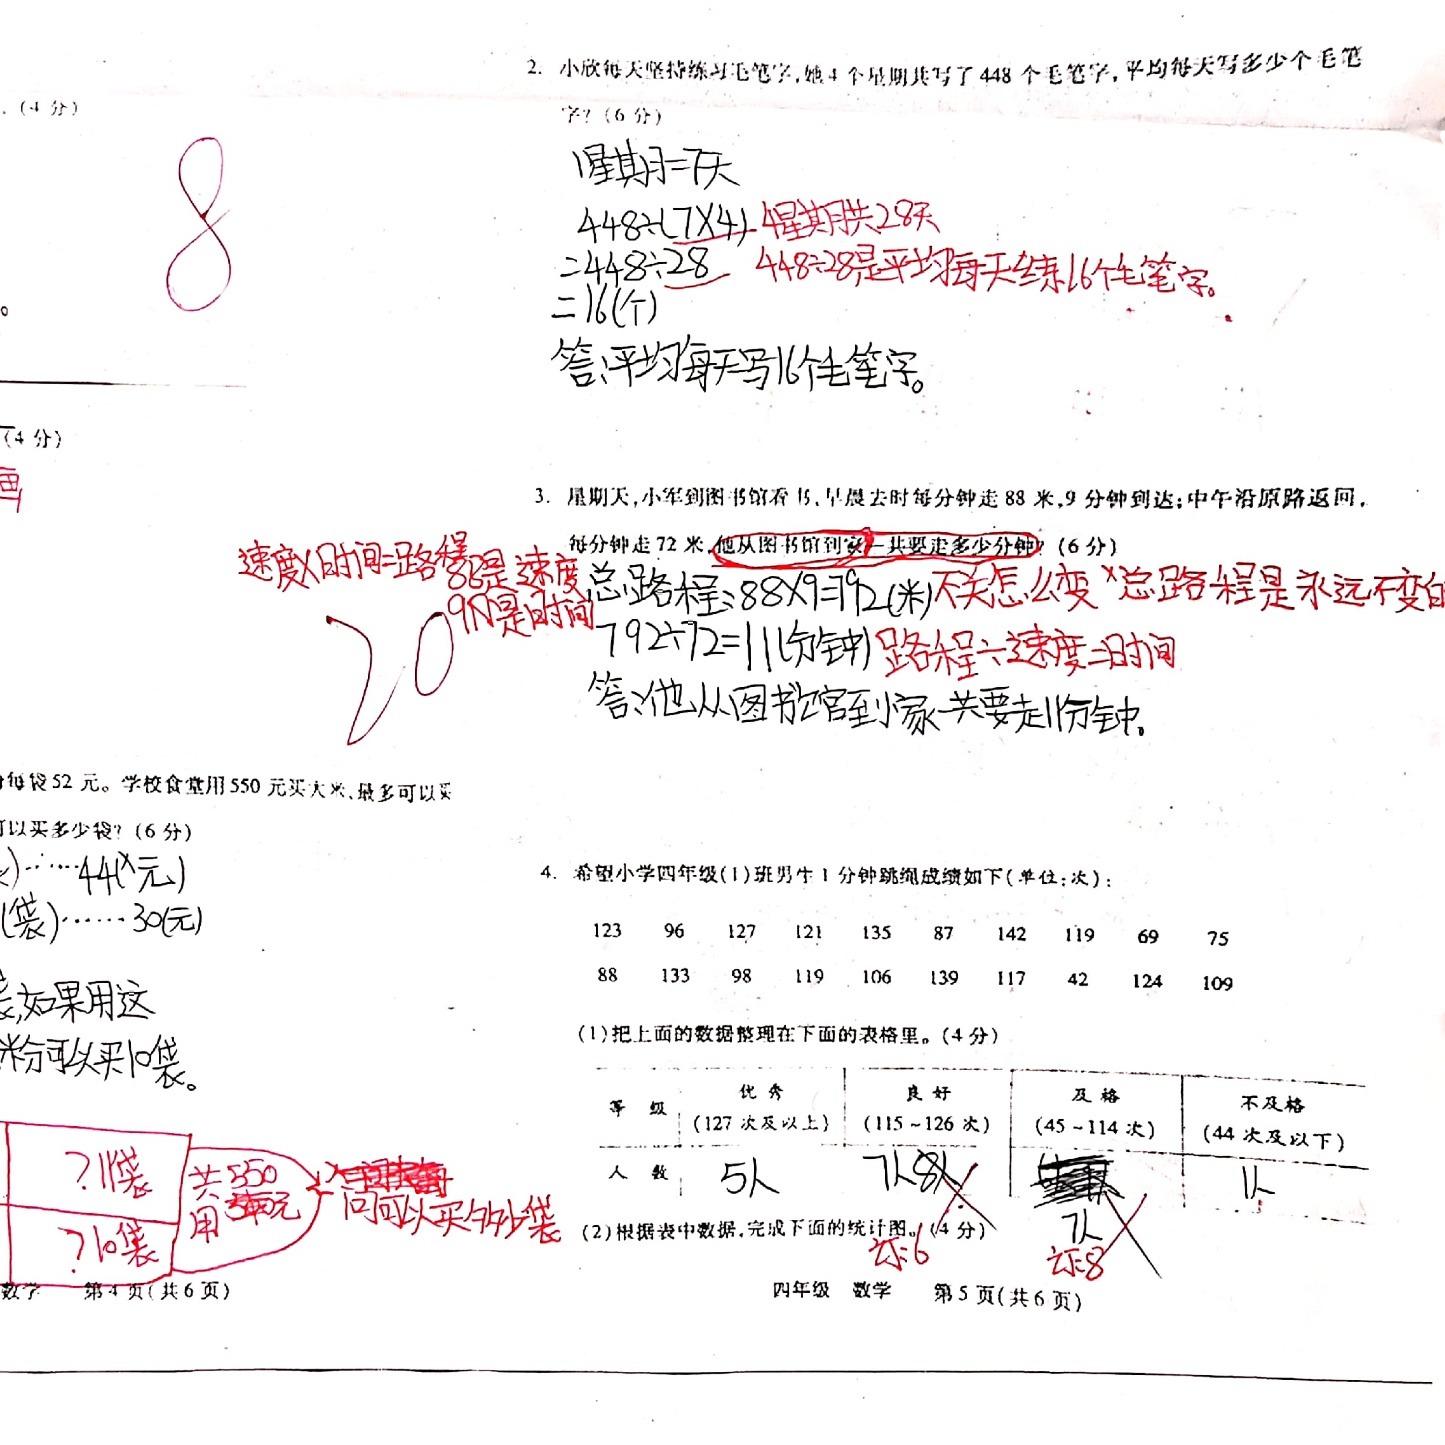 .(4 分)
8
。
(4 分)
画
速度×时间=路程
88是速度
9分是时间
20
每袋52 元。学校食堂用550 元买大米,最多可以买
可以买多少袋?(6 分)
)……44(元)
(袋)……30(元)
袋,如果用这
米分可以买10袋。
?11袋
?10袋
共550元
用
问可以买多少袋
数学 第 4 页(共 6 页)
2. 小欣每天坚持练习毛笔字,她 4 个星期共写了 448 个毛笔字,平均每天写多少个毛笔
字?(6 分)
1星期=7天
448÷(7×4) 4星期共28天
=448÷28 448÷28是平均每天练16个毛笔字。
=16(个)
答:平均每天写16个毛笔字。
3. 星期天,小军到图书馆看书,早晨去时每分钟走 88 米,9 分钟到达;中午沿原路返回,
每分钟走 72 米,他从图书馆到家一共要走多少分钟?(6 分)
总路程:88×9=792(米) 不关怎么变 总路程是永远不变的
792÷72=11(分钟) 路程÷速度=时间
答:他从图书馆到小家一共要走11分钟。
4. 希望小学四年级(1)班男生 1 分钟跳绳成绩如下(单位:次):
123 96 127 121 135 87 142 119 69 75
88 133 98 119 106 139 117 42 124 109
(1)把上面的数据整理在下面的表格里。(4 分)
等 级 优 秀 良 好 及 格 不及格
(127 次及以上) (115~126 次) (45~114 次) (44 次及以下)
人 数 5人 7人 8人 1人
7人
(2)根据表中数据,完成下面的统计图。(4 分)
订:6 订:8
四年级 数学 第 5 页(共 6 页)